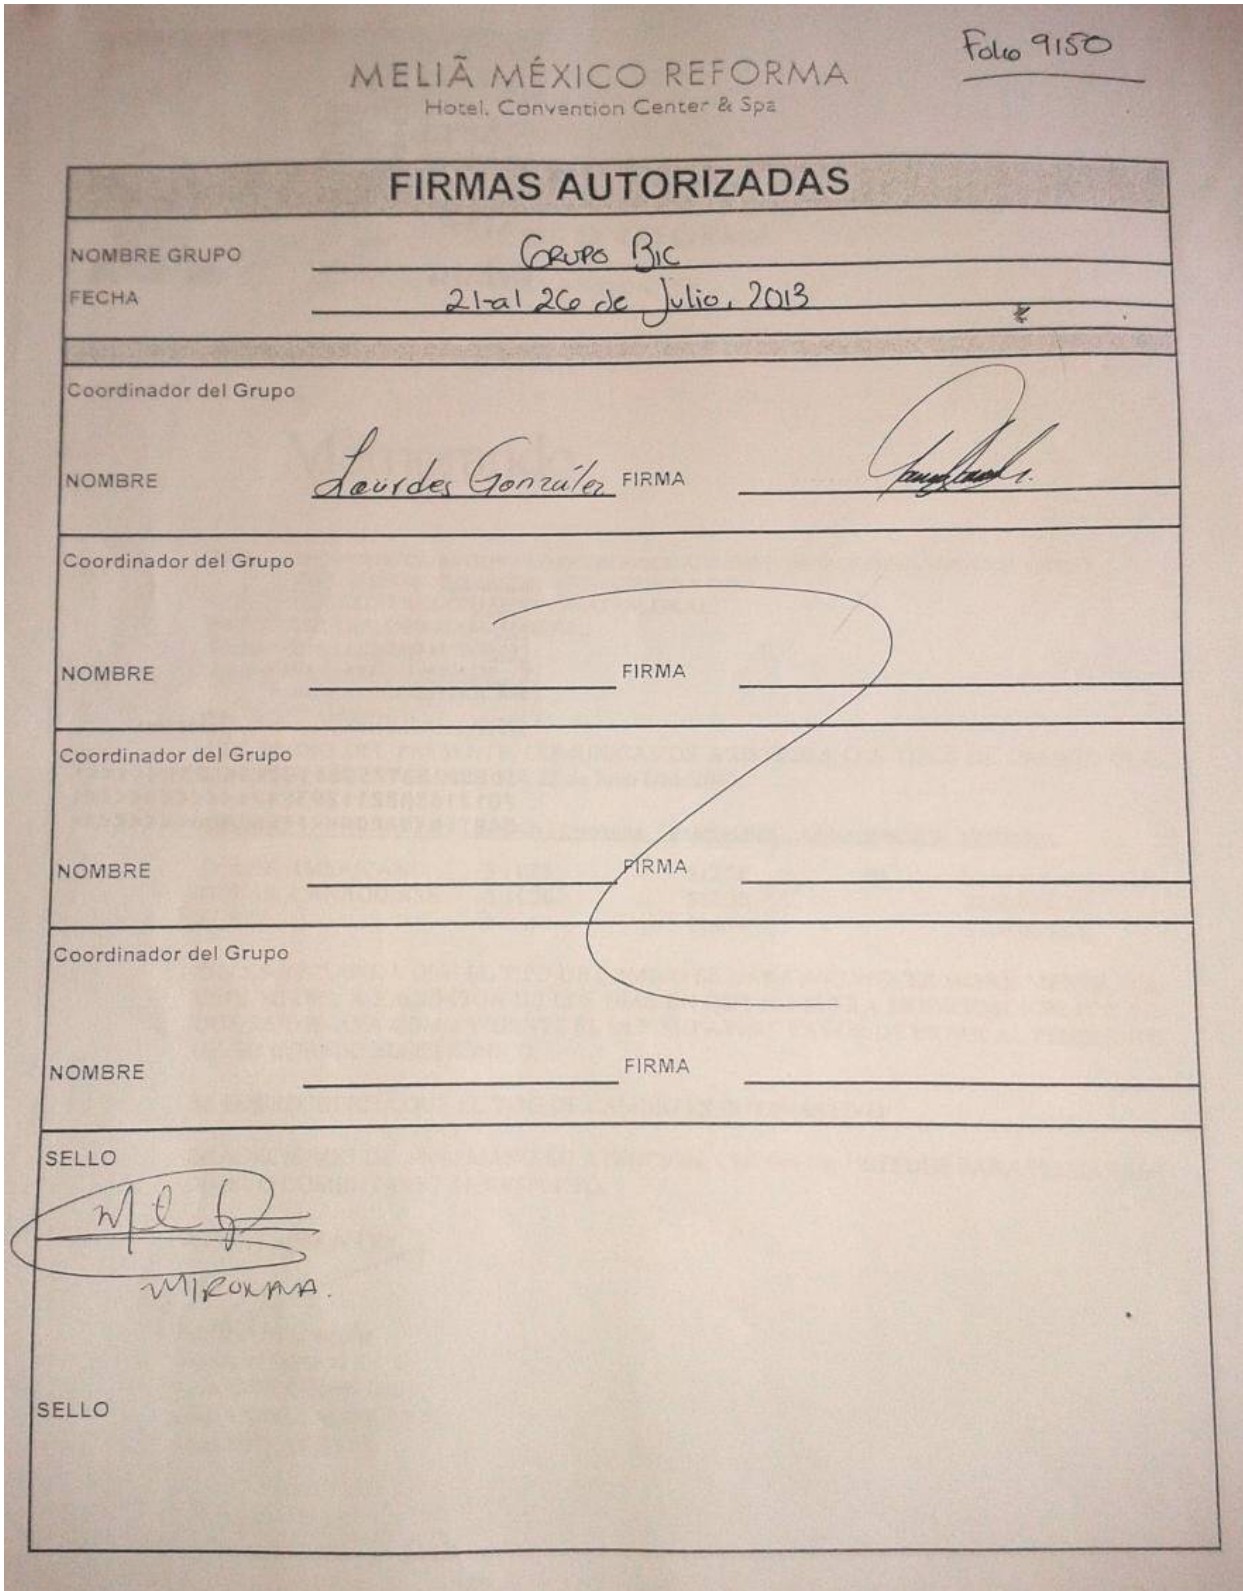 Folio 9150
MELIÃ MÉXICO REFORMA
Hotel, Convention Center & Spa
FIRMAS AUTORIZADAS
NOMBRE GRUPO Grupo Bic
FECHA 21 al 26 de Julio, 2013
Coordinador del Grupo
NOMBRE Lourdes González FIRMA
Coordinador del Grupo
NOMBRE FIRMA
Coordinador del Grupo
NOMBRE FIRMA
Coordinador del Grupo
NOMBRE FIRMA
SELLO
SELLO